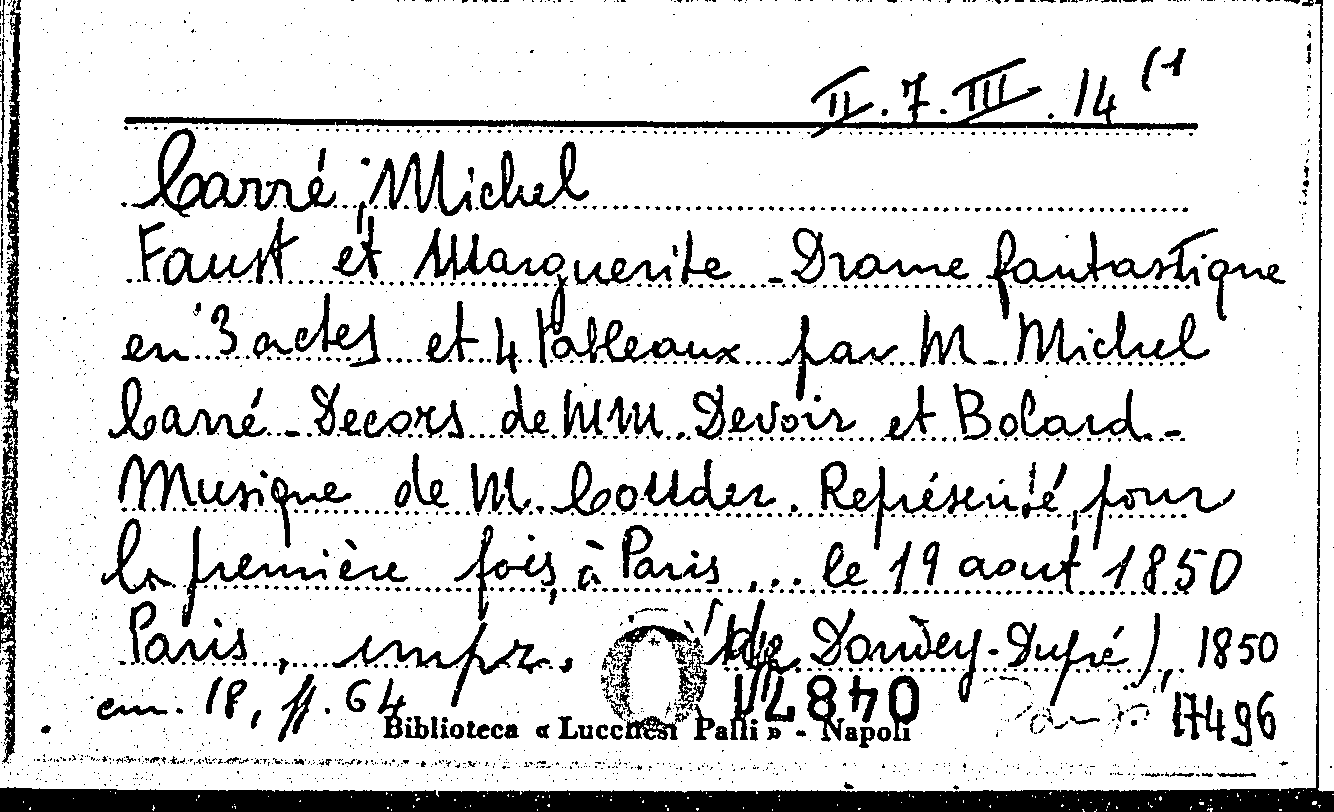 II.7.III.14 (1
Carré, Michel
Faust et Marguerite - Drame fantastique
en 3 actes et 4 tableaux par M. Michel
Carré - Decors de MM. Devoir et Bolard -
Musique de M. Couder. Représenté, pour
la première fois, à Paris ... le 19 aout 1850
Paris, impr. (de Dondey-Dupré), 1850
cm. 18, ff. 64
17496
Biblioteca « Lucchesi Palli » - Napoli